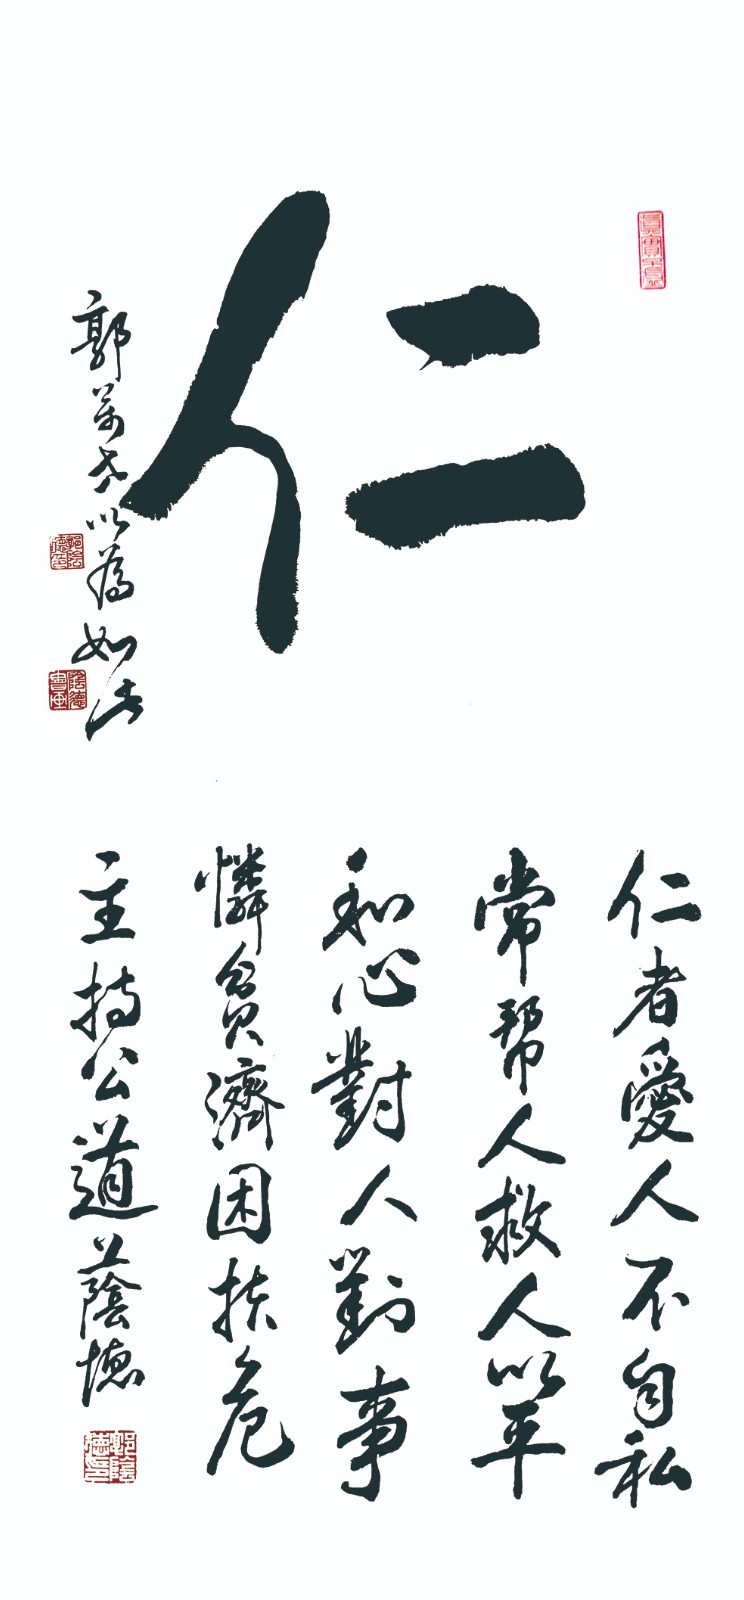 仁
仁者愛人不自私
常帮人救人以平
和心對人對事
憐貧濟困扶危
主持公道蔭德
郭萬堯以為如此